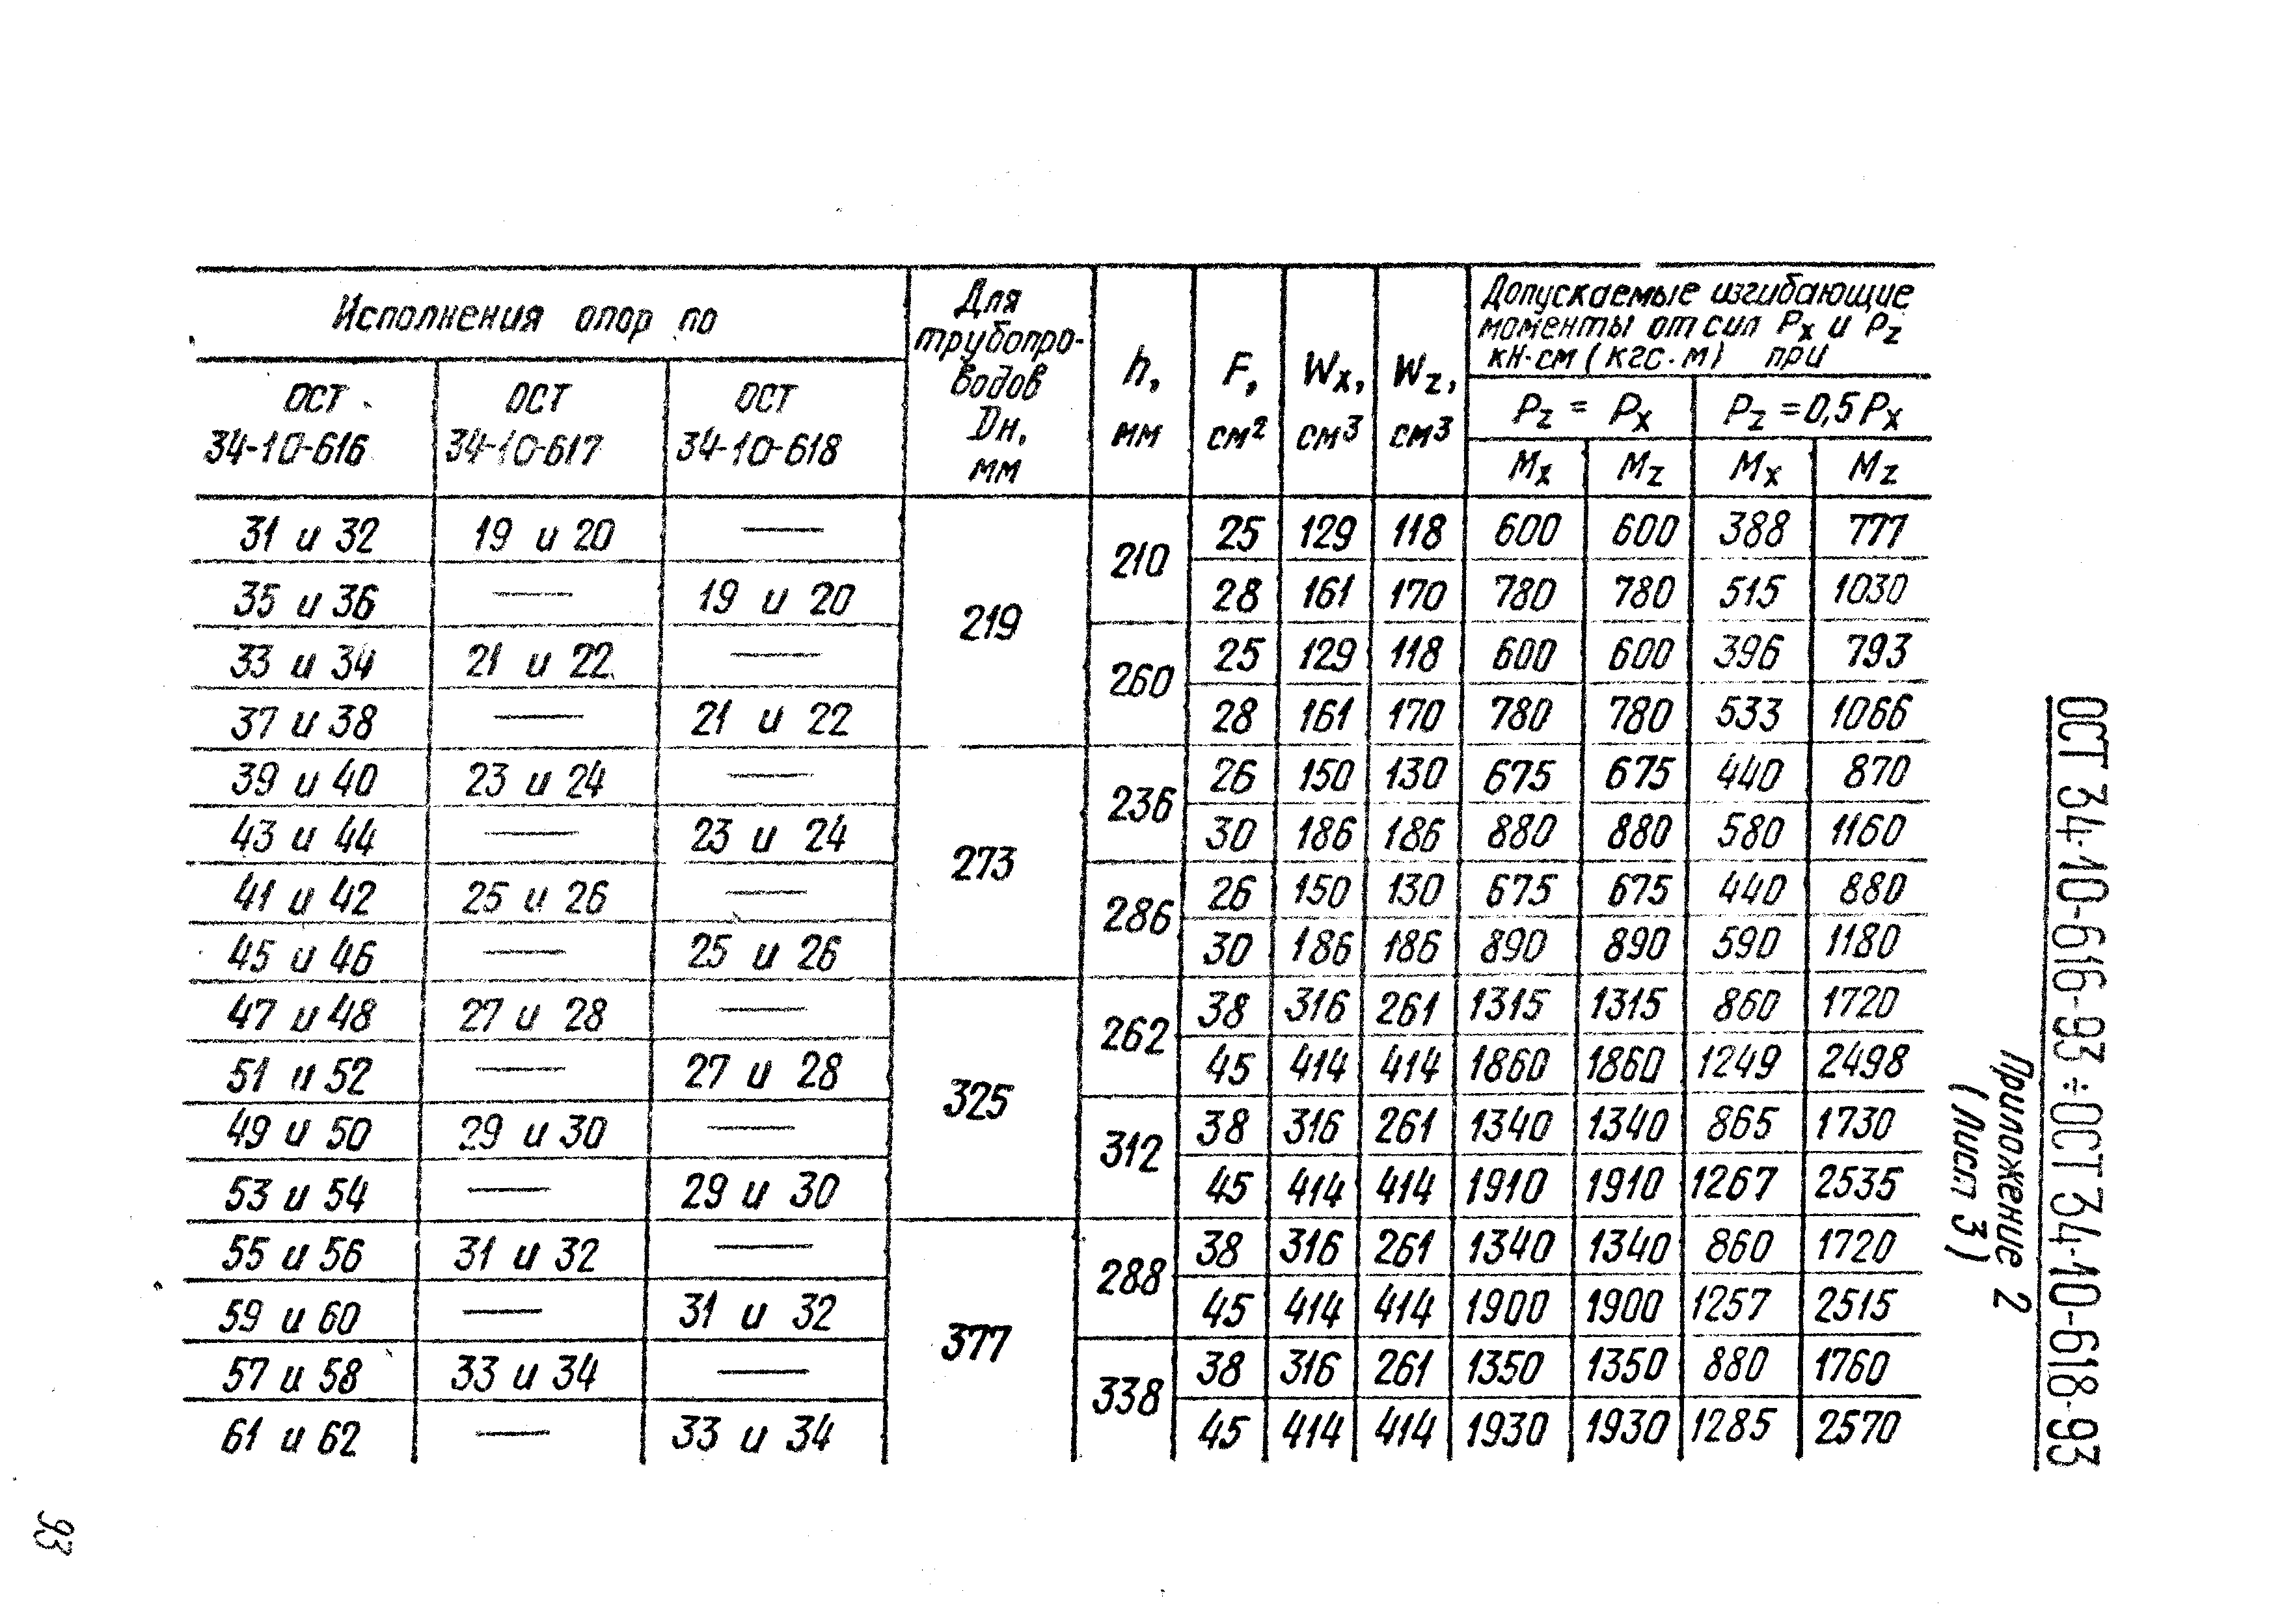 Исполнения опор по
ОСТ 34-10-616
ОСТ 34-10-617
ОСТ 34-10-618
Для трубопро-
водов
Dн,
мм
h, мм
F, см²
Wx, см³
Wz, см³
Допускаемые изгибающие
моменты от сил Px и Pz
кН·см (кгс·м) при
Pz = Px
Pz = 0,5 Px
Mx Mz Mx Mz
31 и 32 19 и 20 — 219 210 25 129 118 600 600 388 777
35 и 36 — 19 и 20 28 161 170 780 780 515 1030
33 и 34 21 и 22 — 260 25 129 118 600 600 396 793
37 и 38 — 21 и 22 28 161 170 780 780 533 1066
39 и 40 23 и 24 — 273 236 26 150 130 675 675 440 870
43 и 44 — 23 и 24 30 186 186 880 880 580 1160
41 и 42 25 и 26 — 286 26 150 130 675 675 440 880
45 и 46 — 25 и 26 30 186 186 890 890 590 1180
47 и 48 27 и 28 — 325 262 38 316 261 1315 1315 860 1720
51 и 52 — 27 и 28 45 414 414 1860 1860 1249 2498
49 и 50 29 и 30 — 312 38 316 261 1340 1340 865 1730
53 и 54 — 29 и 30 45 414 414 1910 1910 1267 2535
55 и 56 31 и 32 — 377 288 38 316 261 1340 1340 860 1720
59 и 60 — 31 и 32 45 414 414 1900 1900 1257 2515
57 и 58 33 и 34 — 338 38 316 261 1350 1350 880 1760
61 и 62 — 33 и 34 45 414 414 1930 1930 1285 2570
ОСТ 34-10-616-93 ÷ ОСТ 34-10-618-93
Приложение 2
(Лист 3)
93